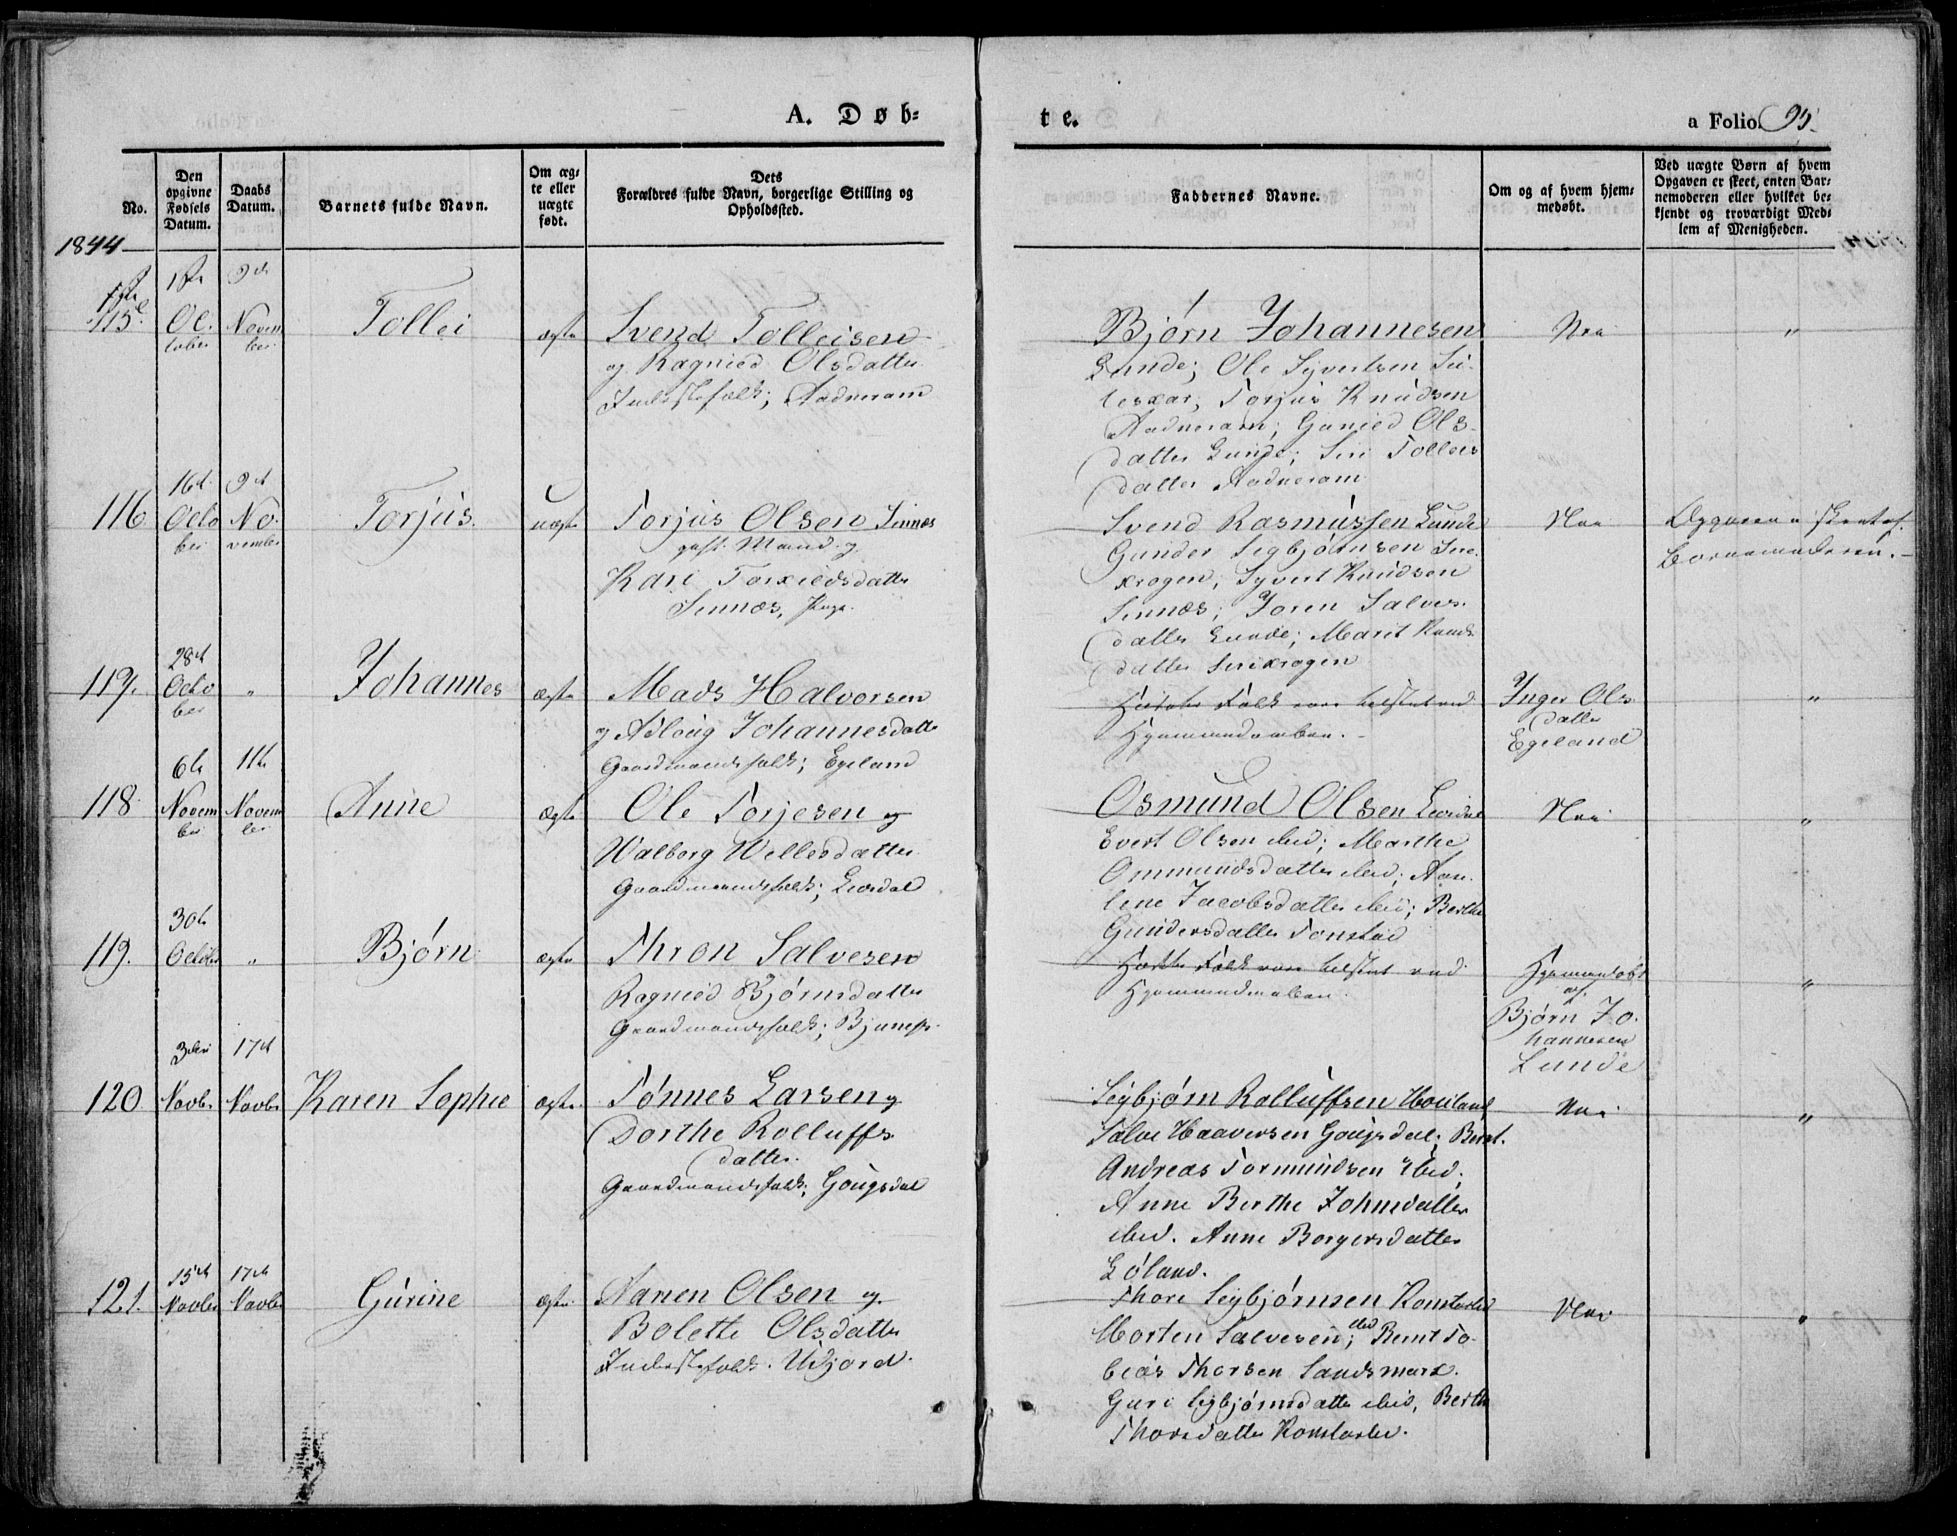 A. Døb=
te.
a Folio. 95.
No.
Den
opgivne
Fødsels
Datum.
Daabs
Datum.
Barnets fulde Navn.
Om æg=
te eller
uægte
født.
Dets
Forældres fulde Navn, borgerlige Stilling og
Opholdssted.
Faddernes Navne.
Om og af hvem hjem=
medøbt.
Ved uægte Børn af hvem
Opgaven er skeet, enten Bar=
nemoderen eller hvilket be=
kjendt og troværdigt Med=
lem af Menigheden.
1844
115
Oc.
tober
9de
Novem
ber
Tollei
ægte
Svend Tolleisen
og Ragnied Olsdatter
Inderstefolk; Aadneram
Bjørn Johannesen
Lunde; Ole Syvertsen Su-
leskar; Torjus Knudsen
Aadneram; Gunied Ols-
datter Lunde; Siri Tolleis
datter Aadneram
Nei
"
116
16de
Octo
ber
9de
No-
vember
Torjus
uægte
Torjus Olsen Sinnes
gift Mand og
Kari Torkieldsdatter
Sinnes, Pige.
Svend Rasmussen Lunde
Gunder Sigbjørnsen Sire
krogen; Syvert Knudsen
Sinnes; Joren Salves-
datter Lunde; Marit Knuds
datter Sirekrogen
Nei
Opgaven er skeet af
Barnemoderen.
119.
28de
Octo
ber
"
Johannes
ægte
Mads Halvorsen
og Aslaug Johannesdatter
Gaardmandsfolk; Egeland
Folk vare tilstede ved
Hjemmedaaben.
Inger Ols
datter
Egeland
"
118
6te
Novem
ber
11te
Novem
ber
Anne
ægte
Ole Torjesen og
Walborg Wellesdatter
Gaardmandsfolk; Liordal
Osmund Olsen Liordal
Evert Olsen ibid; Marthe
Ommundsdatter ibid; Aan-
lene Jacobsdatter ibid; Berthe
Gundersdatter Tonstad
Nei
"
119.
30te
October
"
Bjørn
ægte
Thron Salvesen
Ragnied Bjørnsdatter
Gaardmandsfolk; Bjunes
Folk vare tilstede ved
Hjemmedaaben.
Hjemmedøbt
af
Bjørn Jo-
hannesen
Lunde
"
120
3die
Novbr
17de
Novbr
Karen Sophie
ægte
Tønnes Larsen og
Dorthe Rolluffs-
datter.
Gaardmandsfolk; Gougsdal
Sigbjørn Rolluffsen Houland
Salve Haaversen Gougsdal; Bernt.
Andreas Tormundsen ibid;
Anne Berthe Johnsdatter
ibid. Anne Borgersdatter
Løland.
Nei
"
121.
15de
Novbr
17de
Novbr
Gurine
ægte
Aanen Olsen og
Bolette Olsdatter
Inderstefolk. Udjord.
Thore Sigbjørnsen Komstøled
Morten Salvesen ibid; Bernt To-
bias Thorsen Sandsmark.
Guri Sigbjørnsdatter ibid, Berthe
Thorsdatter Komstøled.
Nei
"